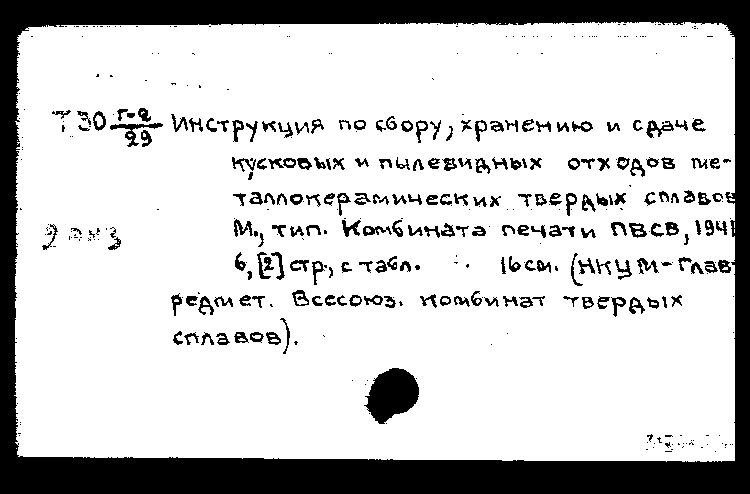 Т30 Г-2/29 Инструкция по сбору, хранению и сдаче
кусковых и пылевидных отходов ме-
таллокерамических твердых сплавов
М., тип. Комбината печати ПВСВ, 1941
6, [2] стр., с табл. 16 см. (НКЦМ-Глав-
редмет. Всесоюз. комбинат твердых
сплавов).
2 экз